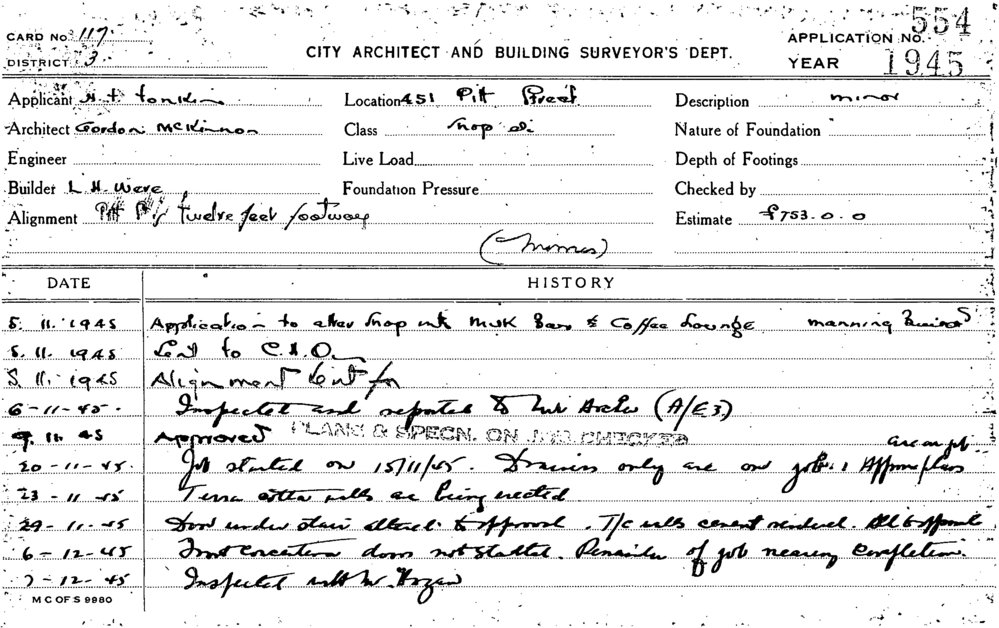 CARD No. 117
DISTRICT 3
CITY ARCHITECT AND BUILDING SURVEYOR'S DEPT.
APPLICATION No. 554
YEAR 1945
Applicant H. T. Tonkin
Location 451 Pitt Street
Description minor
Architect Gordon McKinnon
Class Shop
Nature of Foundation
Engineer
Live Load
Depth of Footings
Builder L. H. Were
Foundation Pressure
Checked by
Alignment Pitt St twelve feet footway
Estimate £753.0.0
DATE HISTORY
5. 11. 1945 Application to alter shop into Milk Bar & Coffee Lounge manning
5. 11. 1945 Sent to C.H.O.
5. 11. 1945 Alignment sent for
6-11-45. Inspected and reported to Mr Archer (A/E3)
9. 11. 45 Approved PLANS & SPECN. ON JOB CHECKED
are on job
20-11-45. Job started on 15/11/45. only are on job. plans
23-11-45 Terra cotta walls are being erected
29-11-45 Door under stair altered to approval. T/C walls cement rendered. All to approval
6-12-45 Front doors not started. Remainder of job nearing completion.
7-12-45 Inspected with Mr Hogan
M C OF S 9980